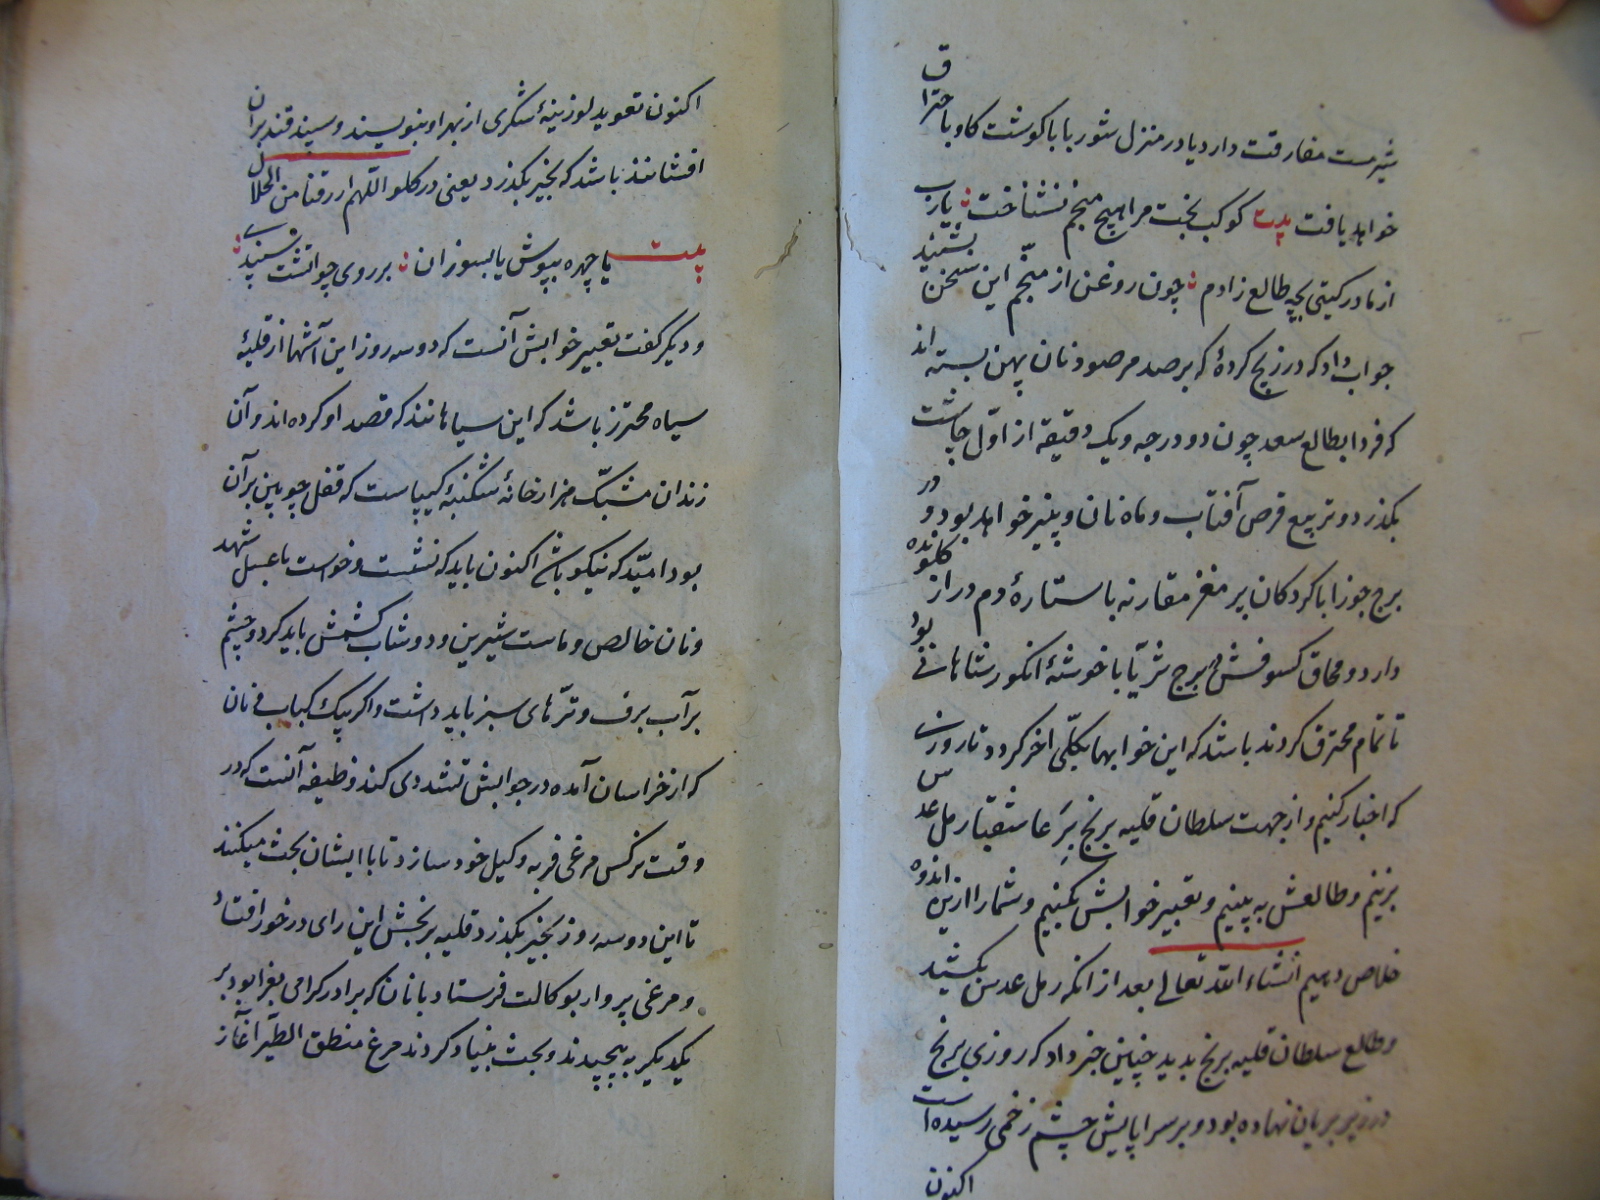 شیر مست مفارقت دارد یا در منزل شوربا با کوشت کاو با احتراق
خواهد یافت بیت کوکب بخت مرا هیچ منجم نشناخت یارب
از مادر کیتی بچه طالع زادم چون روغن از منجم این سخن بشنید
جواب داد که در زیج کرده که بر صد مرصود نان پهن بسته اند
که فردا بطالع سعد چون دو درجه و یک دقیقه از اول چاشت
بکذرد و تربیع قرص آفتاب و ماه نان و پنیر خواهد بود و در
برج جوزا با کردکان پر مغز مقارنه با ستارهٔ دم دراز کلونده
دارد و محاق کسوفش در برج ثریا با خوشهٔ انکور نشاهانی بود
تا تمام محترق کردند باشد که این خوابها بکلی اخر کردد تا روزی
که اخبار کنیم و از جهت سلطان قلیه برنج بر عاشقبا رمل عدس
بزنیم و طالعش به بینیم و تعبیر خوابش بکنیم و شما را ازین اندوه
خلاص دهیم انشاء الله تعالی بعد از انکه رمل عدس بکشید
و طالع سلطان قلیه برنج بدید چنین خبر داد که روزی برنج
در زیر بریان نهاده بود و بر سراپایش چشم زخمی رسیده است
اکنون
اکنون تعوید لوزینهٔ شکری از بهر او بنویسند و سپند قند بران
افشانند باشد که بخیر بکذرد یعنی در کلو اللهم ارزقنا من الحلال
بیت یا چهره بپوش یا بسوزان بر روی چو آتشت سپندی
و دیکر کفت تعبیر خوابش آنست که دو سه روز این آشها از قلیهٔ
سیاه محترز باشد که این سیاهانند که قصد او کرده اند و آن
زندان مشبک هزار خانهٔ شکنبهٔ کیپاست که قفل چوبین بر آن
بود امید که نیکو باشد اکنون باید که نشست و خواست با عسل شهد
و نان خالص و ماست شیرین و دوشاب کشمش باید کرد و چشم
بر آب برف و ترهای سبز باید داشت و اکر پیک کباب فی نان
که از خراسان آمده در جوابش تشددی کند وظیفه آنست که در
وقت نرکس مرغی فربه وکیل خود سازد تا با ایشان بحث میکنند
تا این دو سه روز بخیر بکذرد قلیه برنجش این رای در خور افتاد
و مرغی پروار بوکالت فرستاد با نان که برادر کرامی بغرا بود بر
یکدیکر به پیچیدند و بحث بنیاد کردند مرغ منطق الطیر آغاز